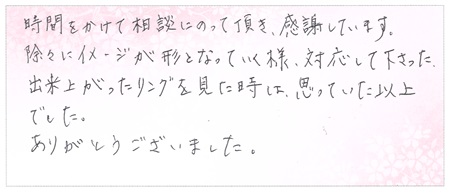 時間をかけて相談にのって頂き、感謝しています。
除々にイメージが形となっていく様、対応して下さった。
出来上がったリングを見た時は、思っていた以上
でした。
ありがとうございました。